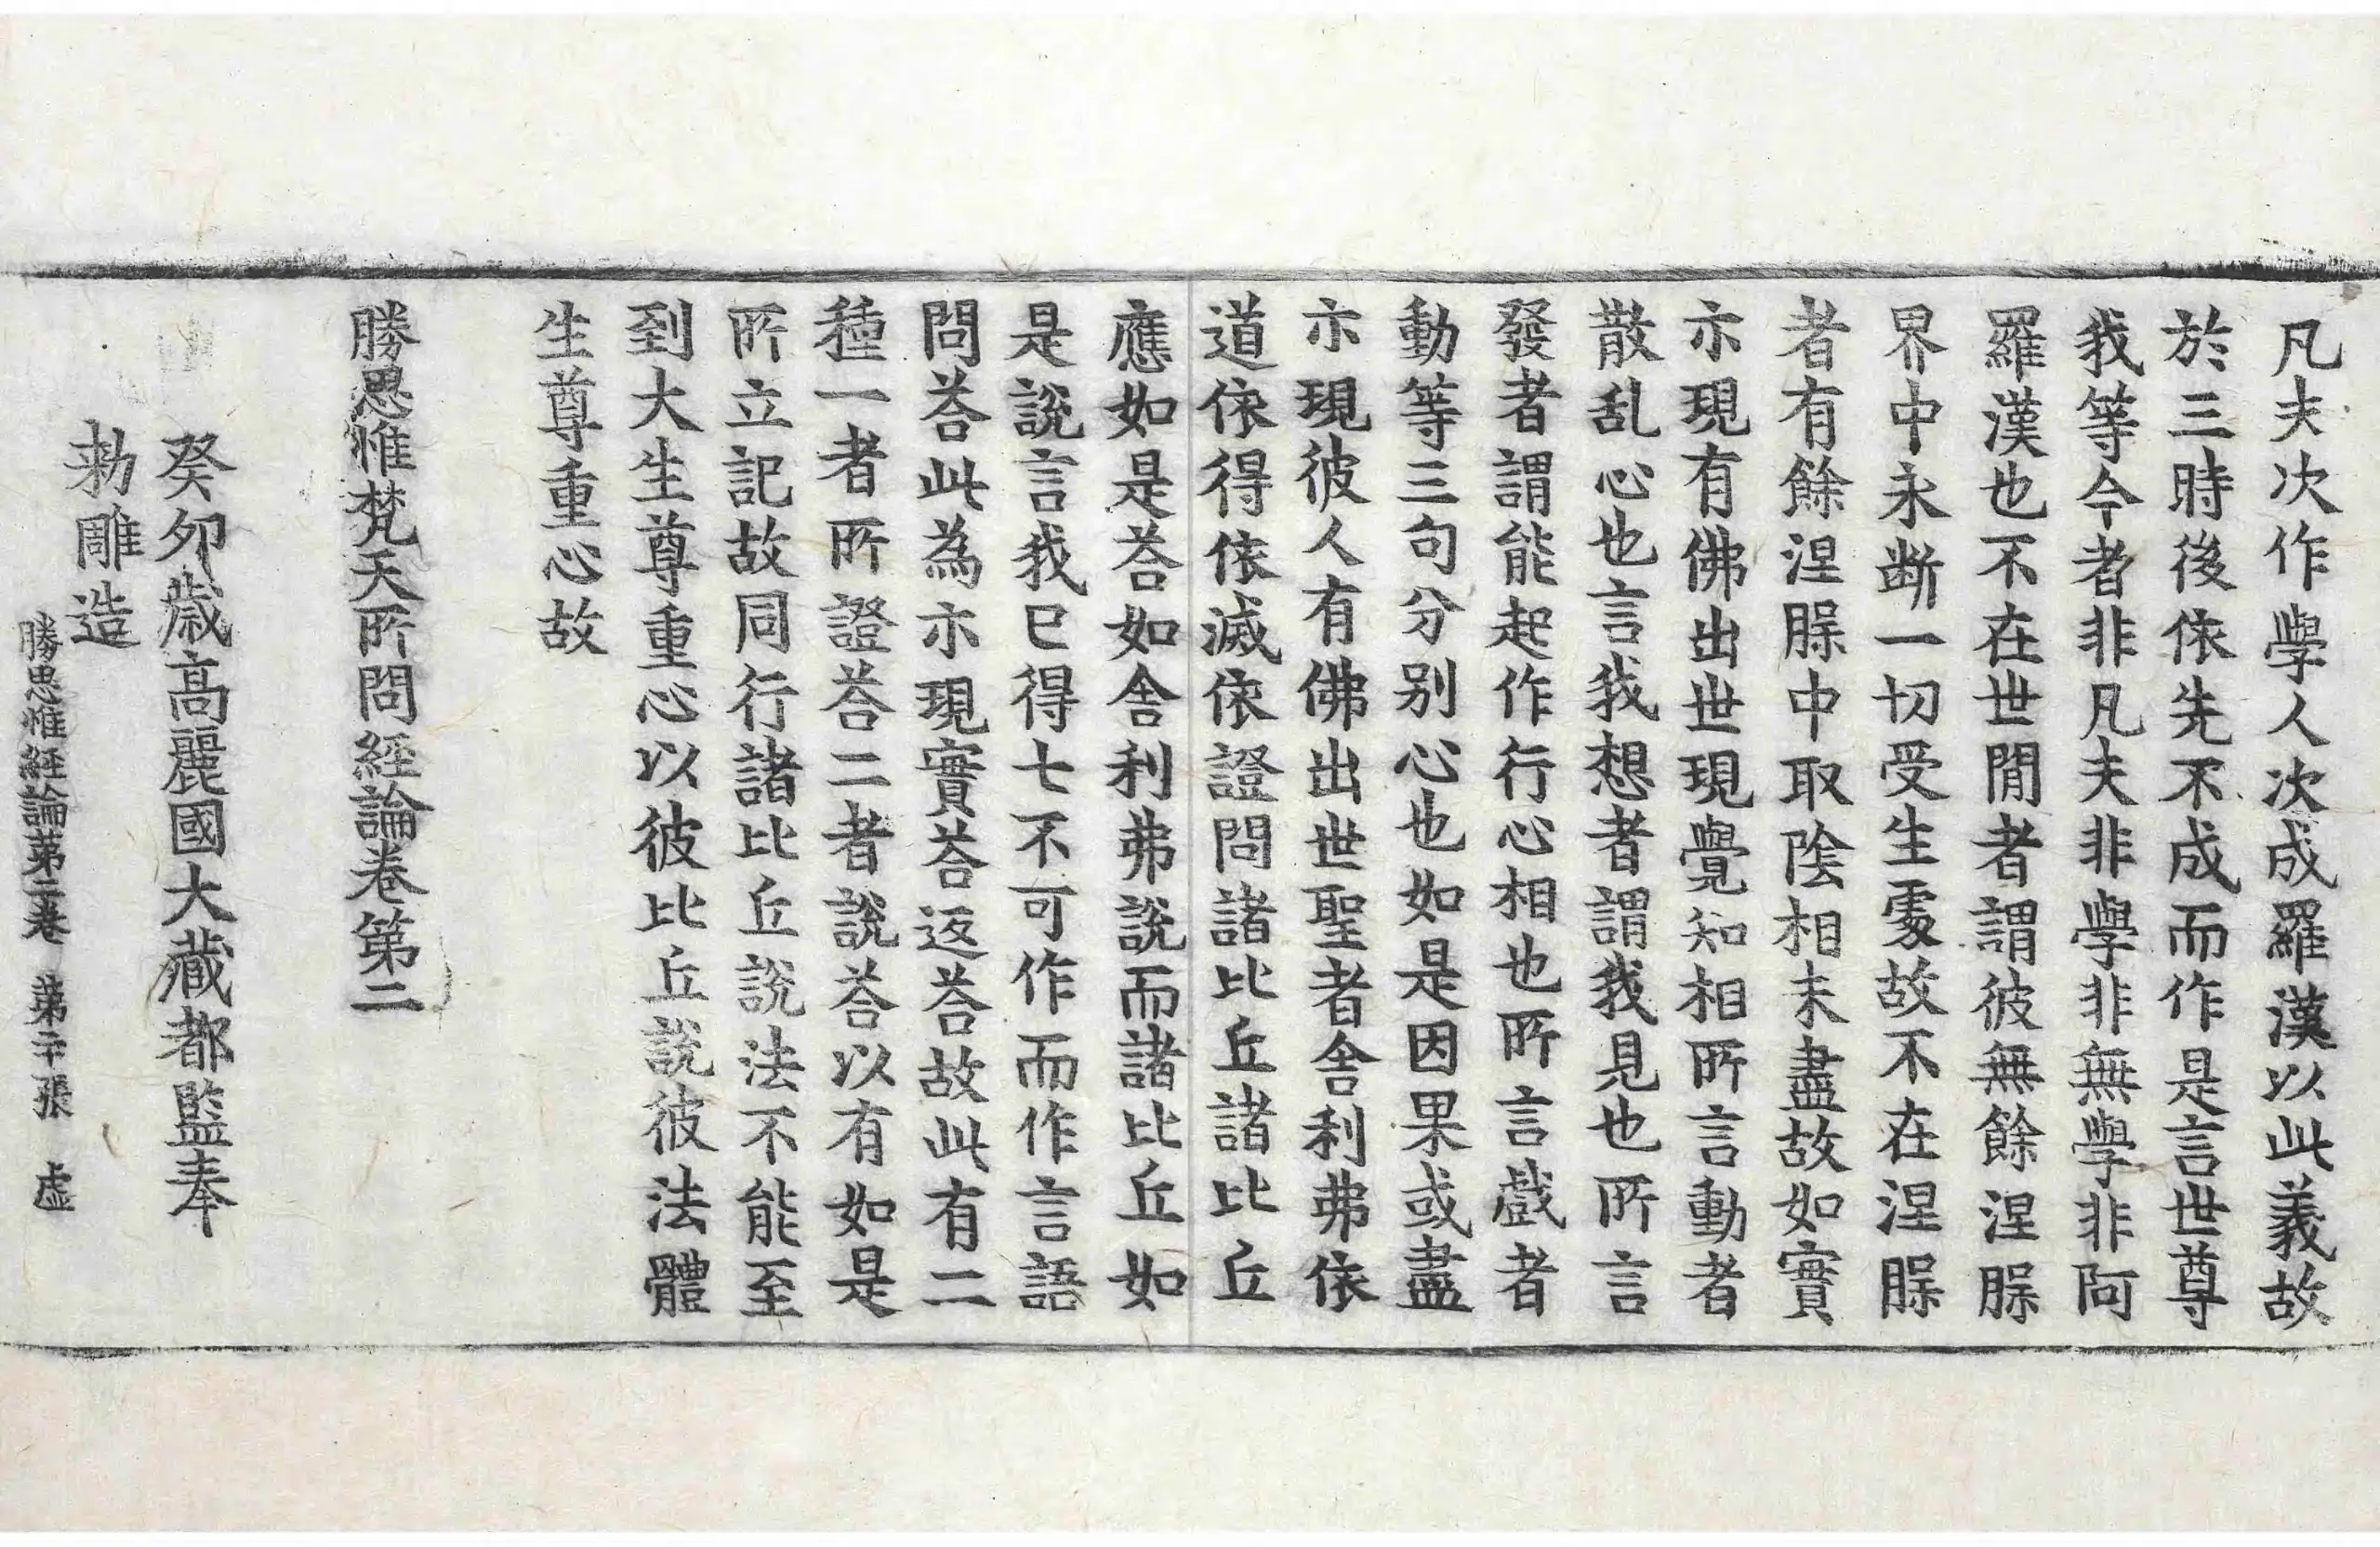 凡夫次作學人次成羅漢以此義故
於三時後依先不成而作是言世尊
我等今者非凡夫非學非無學非阿
羅漢也不在世閒者謂彼無餘涅槃
界中永断一切受生處故不在涅槃
者有餘涅槃中取陰相未盡故如實
示現有佛出世現覺知相所言動者
散乱心也言我想者謂我見也所言
發者謂能起作行心相也所言戲者
動等三句分别心也如是因果或盡
示現彼人有佛出世聖者舎利弗依
道依得依滅依證問諸比丘諸比丘
應如是荅如舎利弗說而諸比丘如
是說言我已得七不可作而作言語
問荅此為示現實荅返荅故此有二
種一者所證荅二者說荅以有如是
所立記故同行諸比丘說法不能至
到大生尊重心以彼比丘說彼法體
生尊重心故
勝思惟梵天所問經論卷第二
癸夘歳高麗國大藏都監奉
勅雕造
勝思惟經論第二卷 第二十張 虛